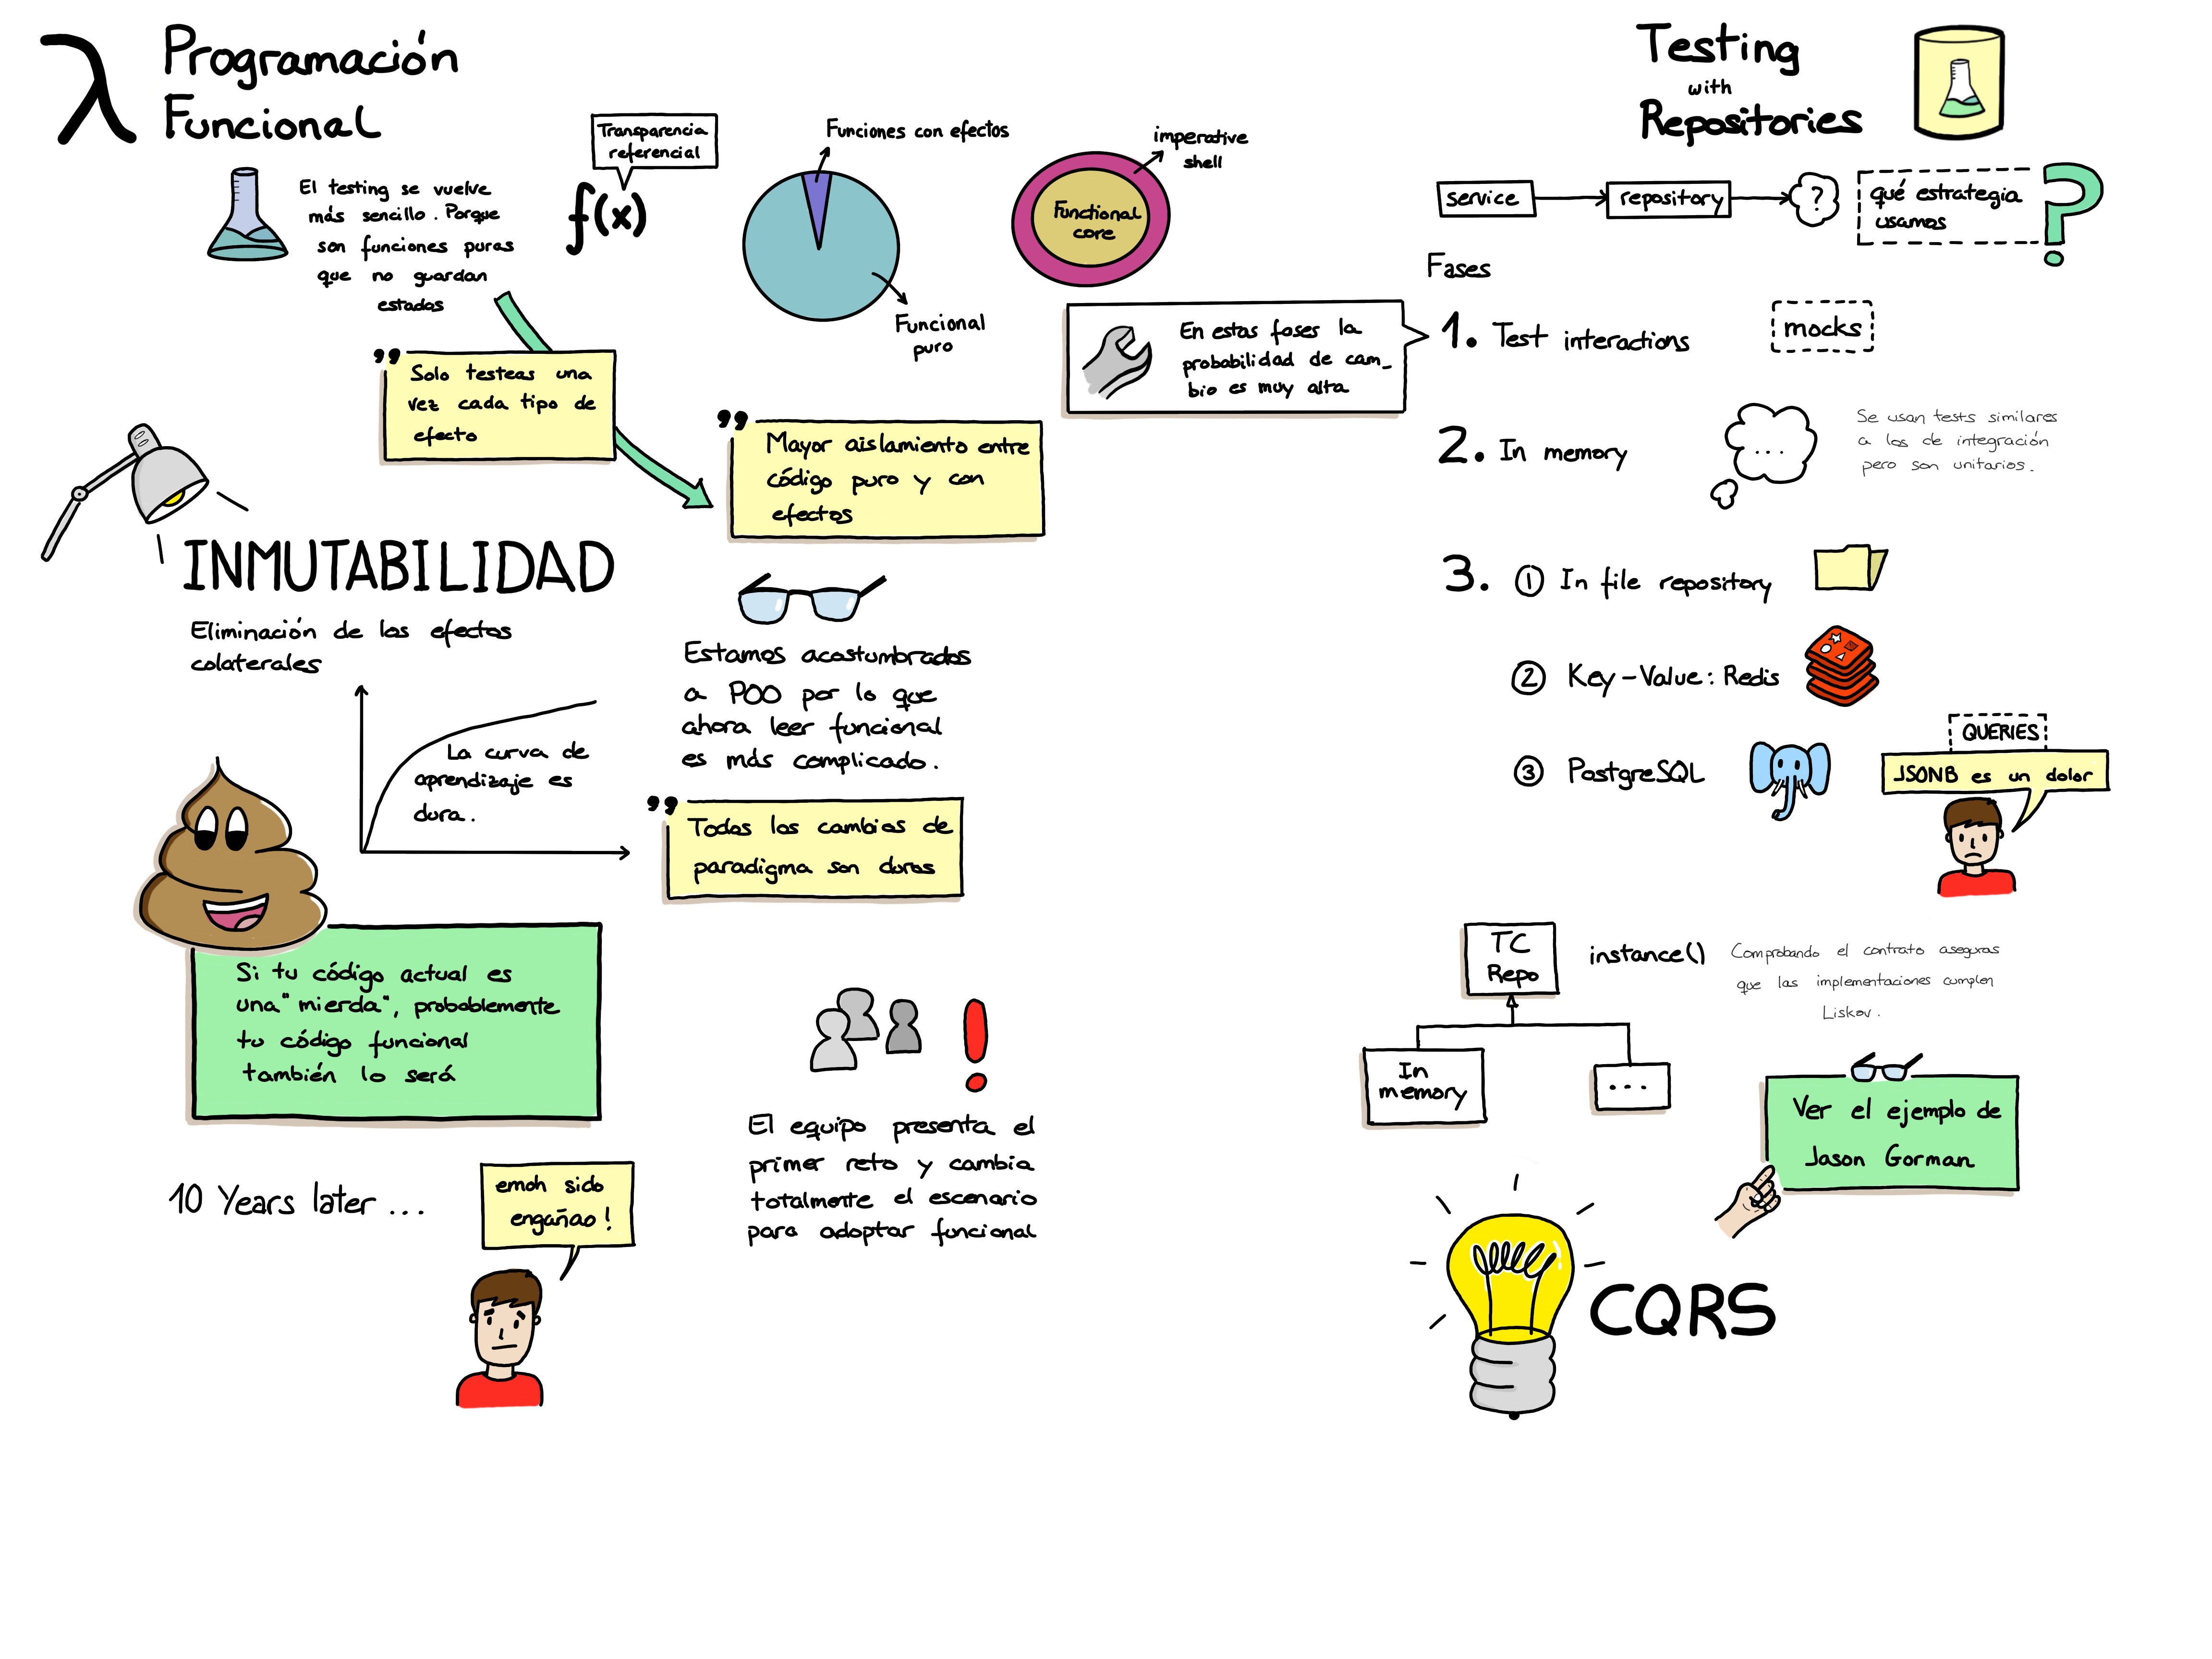 λ
Programación
Funcional
El testing se vuelve
más sencillo. Porque
son funciones puras
que no guardan
estados
Transparencia
referencial
f(x)
Funciones con efectos
Funcional
puro
imperative
shell
Functional
core
” Solo testeas una
vez cada tipo de
efecto
” Mayor aislamiento entre
código puro y con
efectos
INMUTABILIDAD
Eliminación de los efectos
colaterales
La curva de
aprendizaje es
dura.
Estamos acostumbrados
a POO por lo que
ahora leer funcional
es más complicado.
” Todos los cambios de
paradigma son duros
Si tu código actual es
una "mierda", probablemente
tu código funcional
también lo será
10 Years later ...
emoh sido
engañao!
!
El equipo presenta el
primer reto y cambia
totalmente el escenario
para adoptar funcional
Testing
with
Repositories
service
repository
?
qué estrategia
usamos
?
Fases
En estas fases la
probabilidad de cam_
bio es muy alta
1. Test interactions
mocks
2. In memory
...
Se usan tests similares
a los de integración
pero son unitarios.
3. ① In file repository
② Key-Value: Redis
③ PostgreSQL
QUERIES
JSONB es un dolor
TC
Repo
instance()
Comprobando el contrato aseguras
que las implementaciones cumplen
Liskov.
In
memory
...
Ver el ejemplo de
Jason Gorman
CQRS